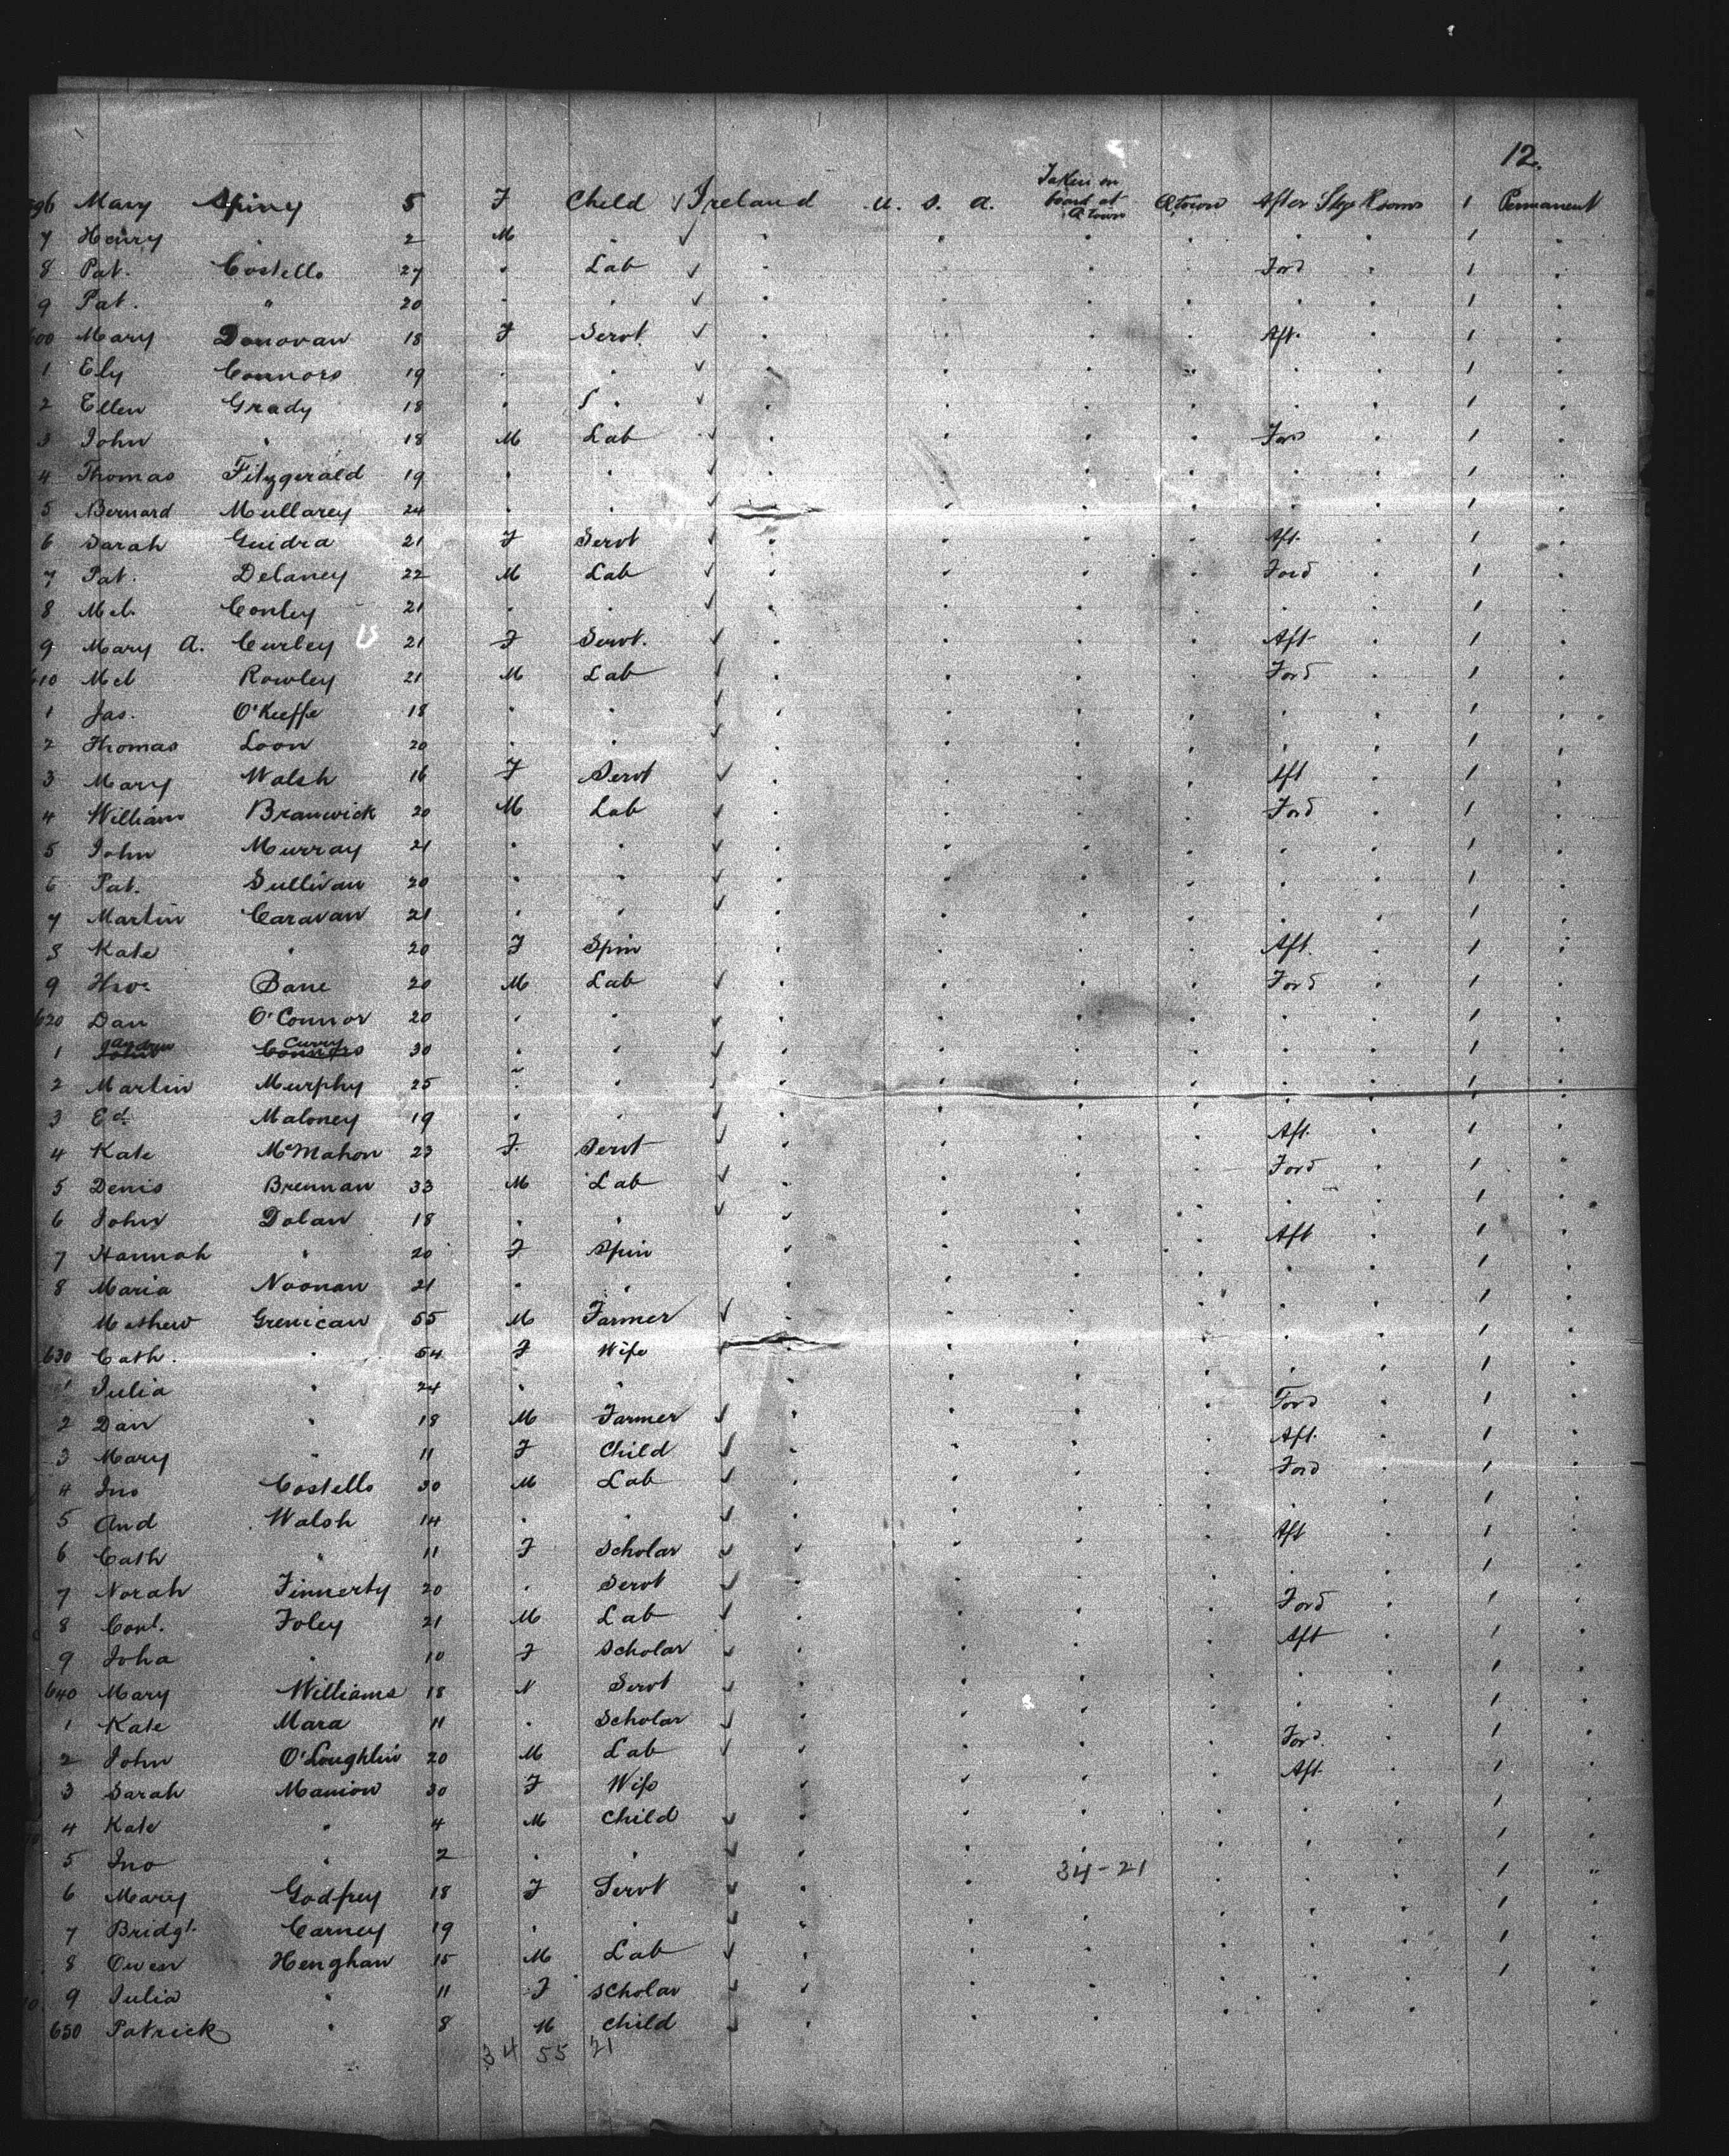 12.
596 Mary Spiny 5 F Child ✓ Ireland U. S. A. Taken on board at Qtown Qtown After Stge Rooms 1 Permanent
7 Henry " 2 M " ✓ " " " " " " 1 "
8 Pat. Costello 27 " Lab ✓ " " " " Ford " 1 "
9 Pat. " 20 " " ✓ " " " " " " 1 "
600 Mary Donovan 18 F Servt. ✓ " " " " Aft. " 1 "
1 Ely Connors 19 " " ✓ " " " " " " 1 "
2 Ellen Grady 18 " S " ✓ " " " " " " 1 "
3 John " 18 M Lab ✓ " " " " Ford " 1 "
4 Thomas Fitzgerald 19 " " ✓ " " " " " " 1 "
5 Bernard Mullarey 24 " " ✓ " " " " " " 1 "
6 Sarah Guidra 21 F Servt ✓ " " " " Aft. " 1 "
7 Pat. Delaney 22 M Lab ✓ " " " " Ford " 1 "
8 Mcl. Conley 21 " " ✓ " " " " " " 1 "
9 Mary A. Curley 21 F Servt. ✓ " " " " Aft " 1 "
610 Mcl Rowley 21 M Lab ✓ " " " " Ford " 1 "
1 Jas. O'Keeffe 18 " " ✓ " " " " " " 1 "
2 Thomas Loon 20 " " ✓ " " " " " " 1 "
3 Mary Walsh 16 F Servt ✓ " " " " Aft " 1 "
4 William Branwick 20 M Lab ✓ " " " " Ford " 1 "
5 John Murray 21 " " ✓ " " " " " " 1 "
6 Pat. Sullivan 20 " " ✓ " " " " " " 1 "
7 Martin Caravan 21 " " ✓ " " " " " " 1 "
8 Kate " 20 F Spin " " " " Aft. " 1 "
9 Thos. Bane 20 M Lab ✓ " " " " Ford " 1 "
620 Dan O'Connor 20 " " ✓ " " " " " " 1 "
1 Andrew Curry Connors 30 " " ✓ " " " " " " 1 "
2 Martin Murphy 25 " " ✓ " " " " " " 1 "
3 Ed. Maloney 19 " " ✓ " " " " " " 1 "
4 Kate McMahon 23 F. Servt ✓ " " " " Aft. " 1 "
5 Denis Brennan 33 M Lab ✓ " " " " Ford " 1 "
6 John Dolan 18 " " ✓ " " " " " " 1 "
7 Hannah " 20 F Spin " " " " Aft " 1 "
8 Maria Noonan 21 " " " " " " " " 1 "
Mathew Grenican 55 M Farmer ✓ " " " " " " 1 "
630 Cath. " 54 F Wife ✓ " " " " " " 1 "
1 Julia " 24 " " " " " " " " 1 "
2 Dan " 18 M Farmer ✓ " " " " Ford " 1 "
3 Mary " 11 F Child ✓ " " " " Aft. " 1 "
4 Jno Costello 30 M Lab ✓ " " " " Ford " 1 "
5 And Walsh 14 " " ✓ " " " " " " 1 "
6 Cath " 11 F Scholar ✓ " " " " Aft " 1 "
7 Norah Finnerty 20 " Servt ✓ " " " " " " 1 "
8 Corl. Foley 21 M Lab ✓ " " " " Ford " 1 "
9 Joha " 10 F Scholar ✓ " " " " Aft " 1 "
640 Mary Williams 18 " Servt ✓ " " " " " " 1 "
1 Kate Mara 11 " Scholar ✓ " " " " " " 1 "
2 John O'Loughlin 20 M Lab ✓ " " " " Ford. " 1 "
3 Sarah Manion 30 F Wife " " " " Aft. " 1 "
4 Kate " 4 M Child ✓ " " " " " " 1 "
5 Jno " 2 " " ✓ " " " " " " 1 "
34-21
6 Mary Godfrey 18 F Servt ✓ " " " " " 1 "
7 Bridgt. Carney 19 " " ✓ " " " " " " 1 "
8 Owen Henghan 15 M Lab ✓ " " " " " " 1 "
9 Julia " 11 F Scholar ✓ " " " " " " 1 "
650 Patrick " 8 M Child ✓ " " " " " "
34 55 21